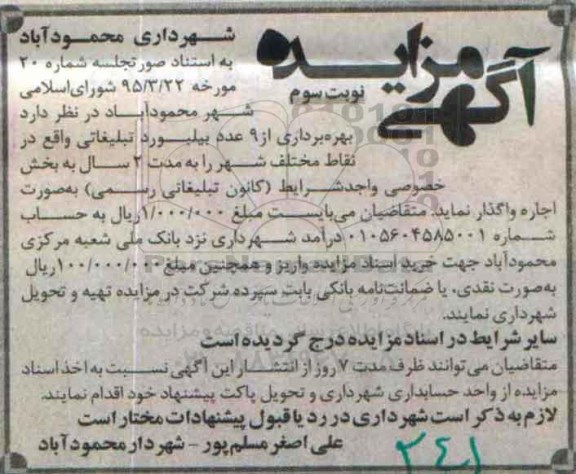 آگهی مزایده
نوبت سوم
شهرداری محمودآباد
به استناد صورتجلسه شماره ۲۰
مورخه ۹۵/۳/۲۲ شورای‌اسلامی
شهر محمودآباد در نظر دارد
بهره‌برداری از ۹ عدد بیلبورد تبلیغاتی واقع در
نقاط مختلف شهر را به مدت ۲ سال به بخش
خصوصی واجدشرایط (کانون تبلیغاتی رسمی) به‌صورت
اجاره واگذار نماید. متقاضیان می‌بایست مبلغ ۱/۰۰۰/۰۰۰ریال به حساب
شماره ۰۱۰۵۶۰۴۵۸۵۰۰۱ درآمد شهرداری نزد بانک ملی شعبه مرکزی
محمودآباد جهت خرید اسناد مزایده واریز و همچنین مبلغ ۱۰۰/۰۰۰/۰۰۰ریال
به‌صورت نقدی، یا ضمانت‌نامه بانکی بابت سپرده شرکت در مزایده تهیه و تحویل
شهرداری نمایند.
سایر شرایط در اسناد مزایده درج گردیده است
متقاضیان می‌توانند ظرف مدت ۷ روز از انتشار این آگهی نسبت به اخذ اسناد
مزایده از واحد حسابداری شهرداری و تحویل پاکت پیشنهاد خود اقدام نمایند.
لازم به ذکر است شهرداری در رد یا قبول پیشنهادات مختار است
علی اصغر مسلم پور - شهردار محمودآباد
۳۴۸۱